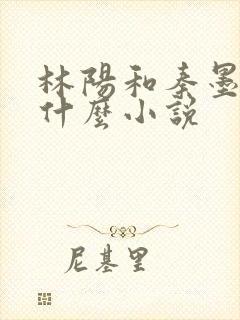 林陽和秦墨
什麼小說
尼基里